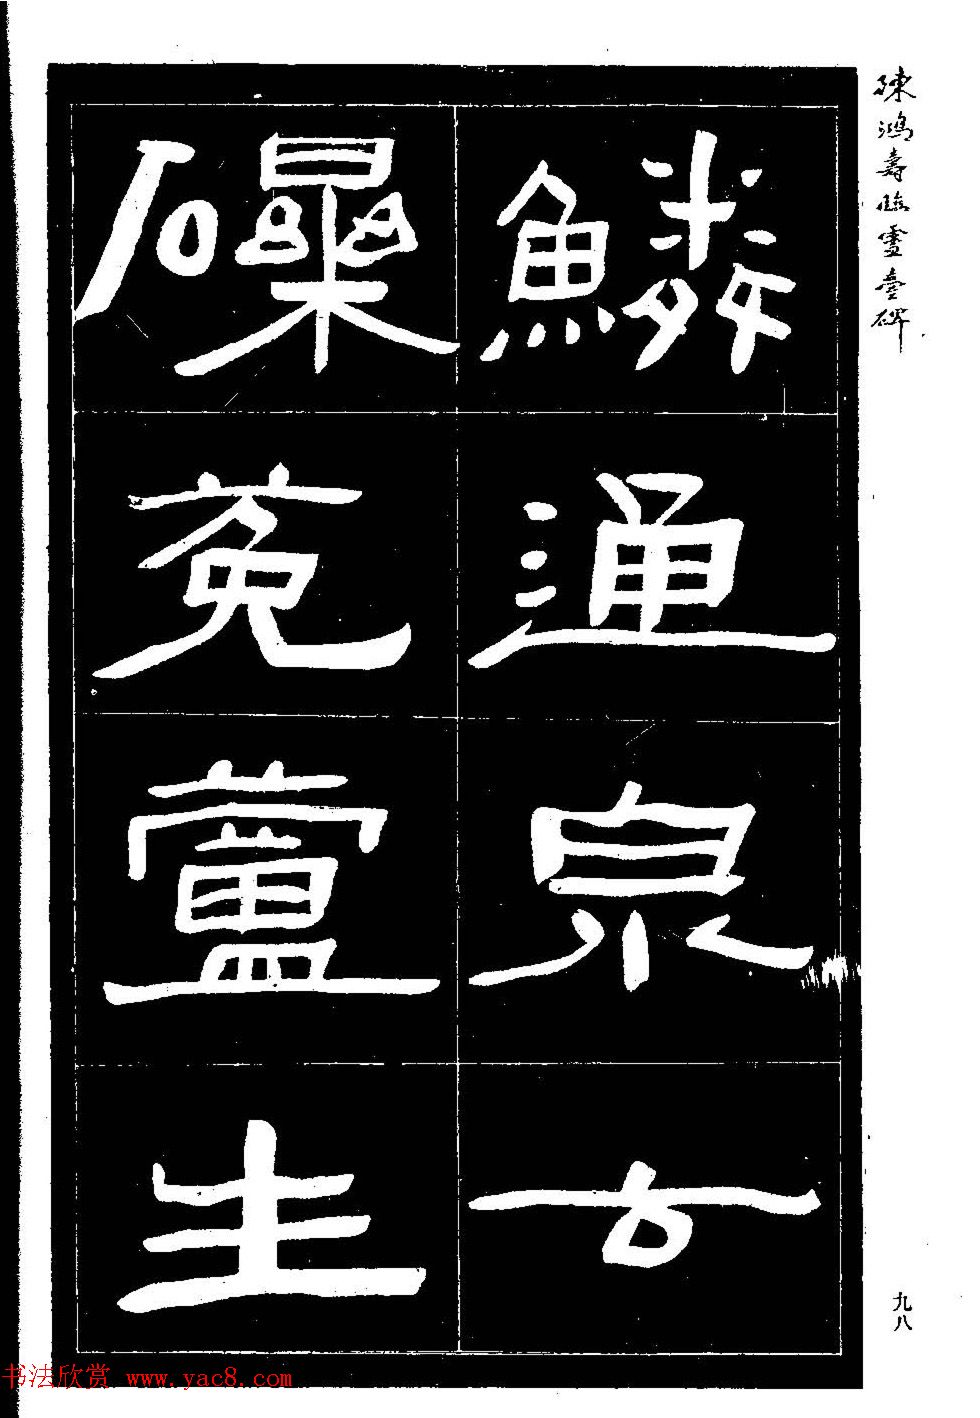 陳鴻壽臨靈臺碑
鱗通泉
礫莬生
九八
书法欣赏 www.yac8.com